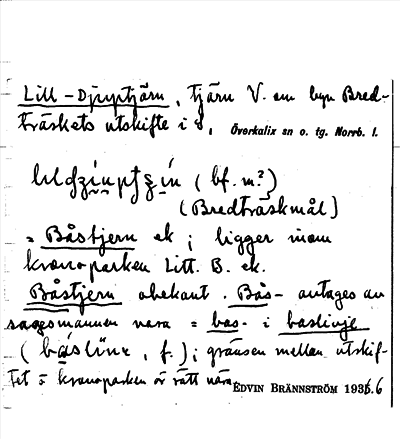 Lill-Djuptjärn, tjärn V. om byn Bred-
träskets utskifte i s. Överkalix sn o. tg. Norrb. l.
(bf. m.?)
(Bredträskmål)
= Båstjern ek; ligger inom
kronoparken Litt. B. ek.
Båstjern obekant. Bås- antages av
sagesmannen vara = bas- i baslinje
f.); gränsen mellan utskif-
tet o kronoparken är rätt nära.
EDVIN BRÄNNSTRÖM 1936.6